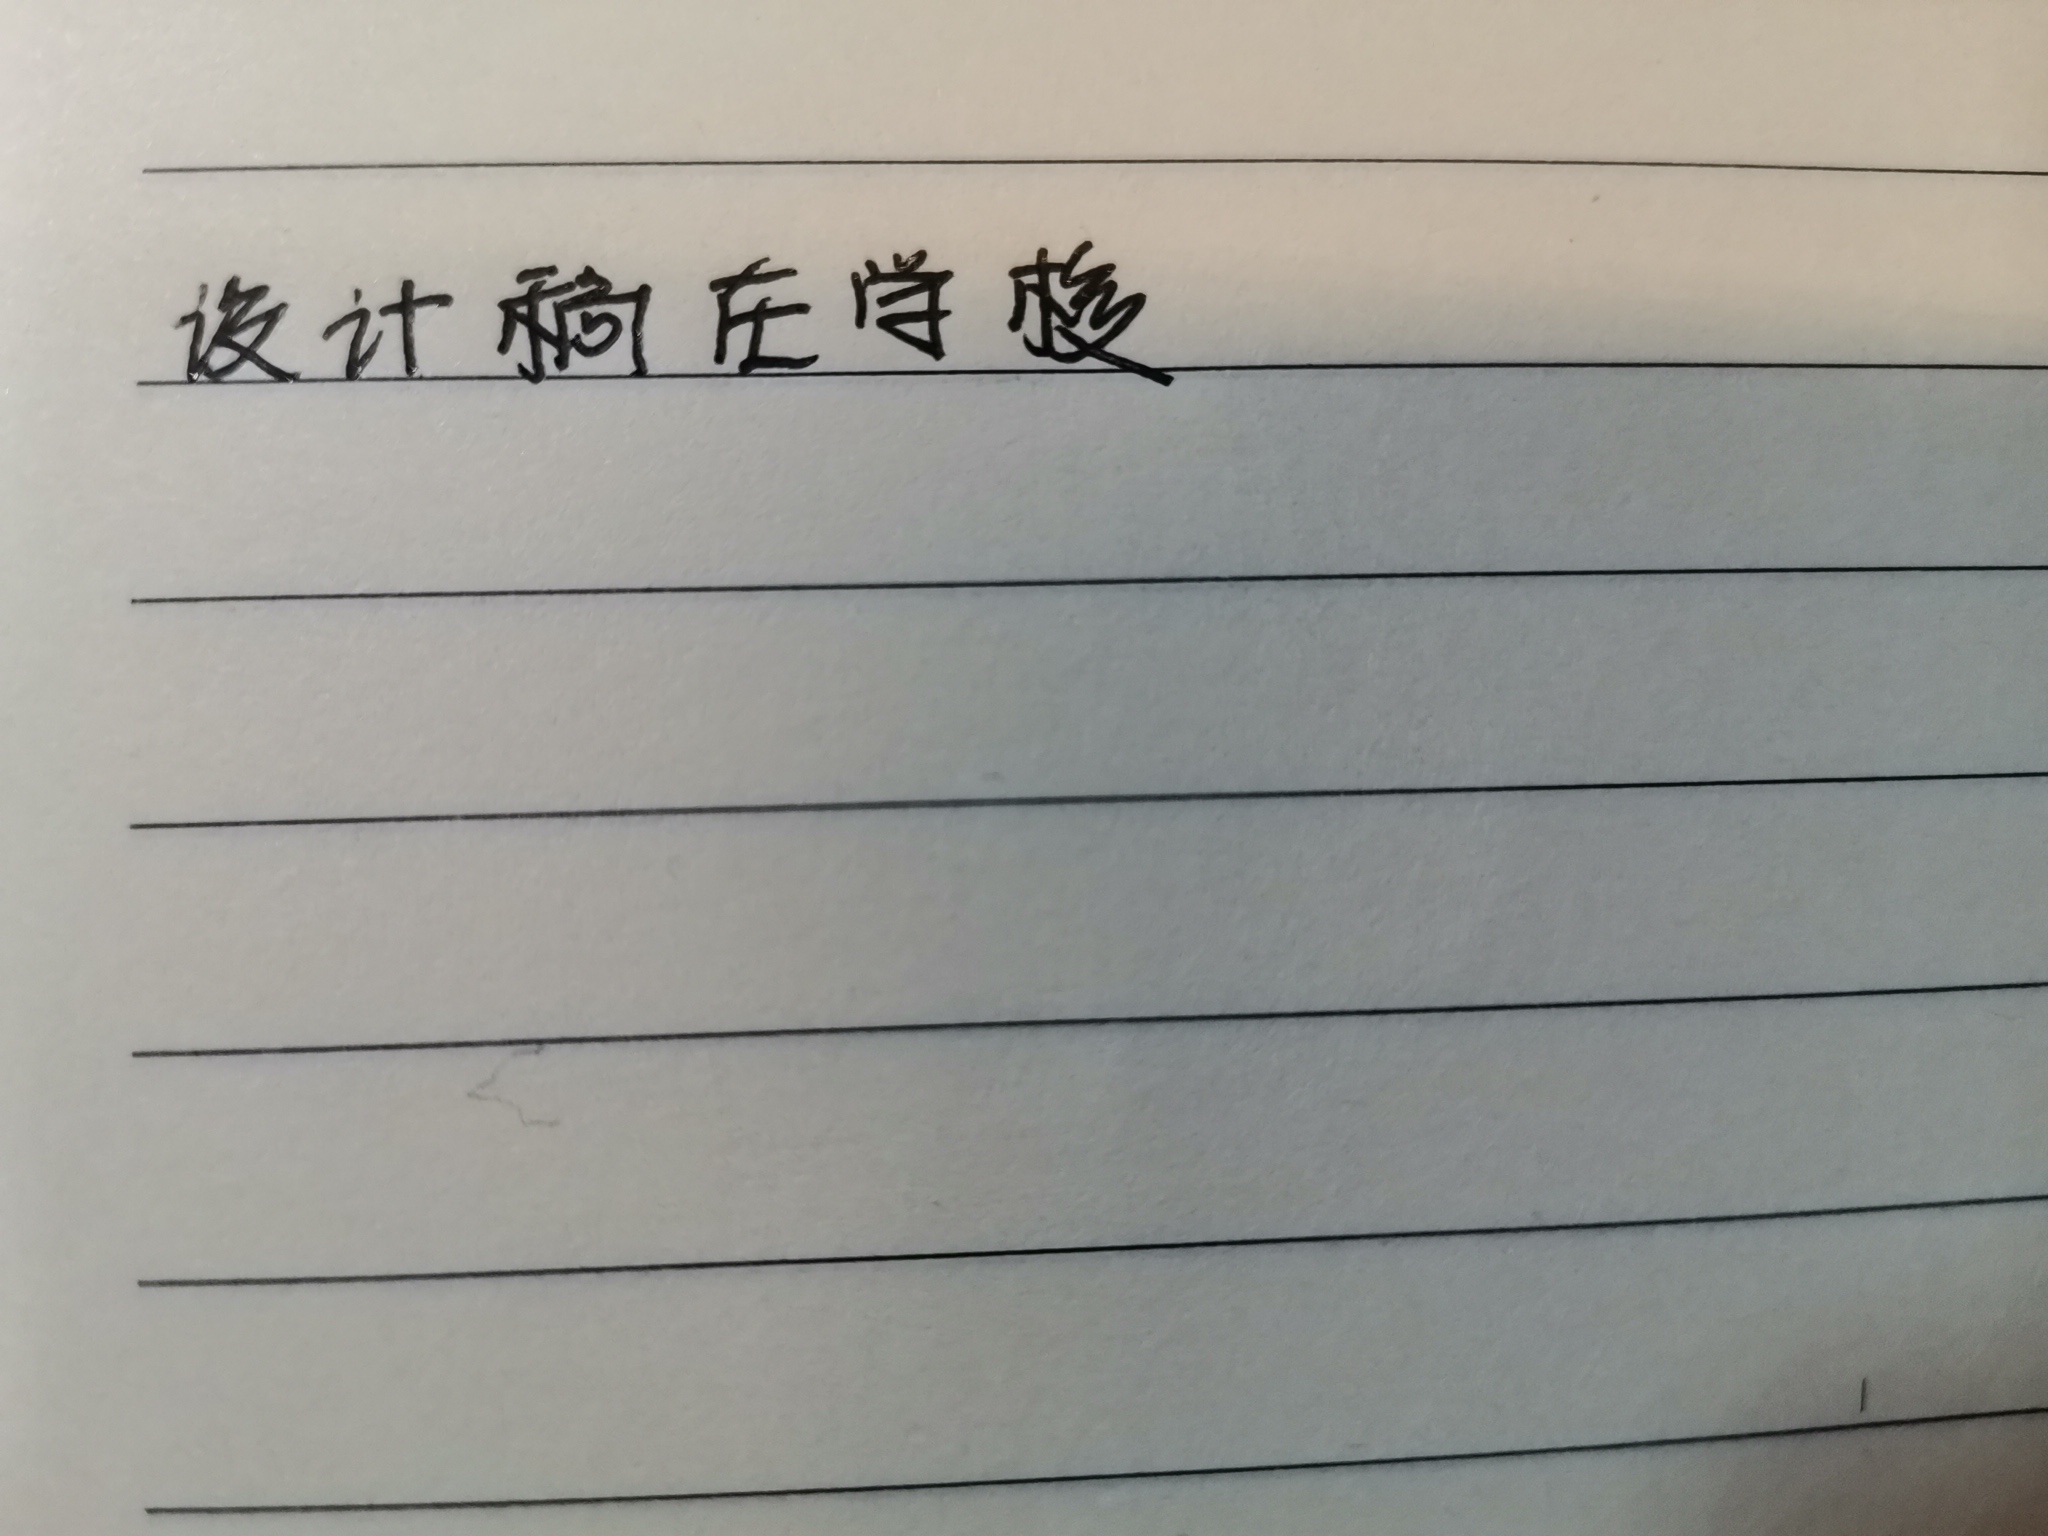 设计稿在学校